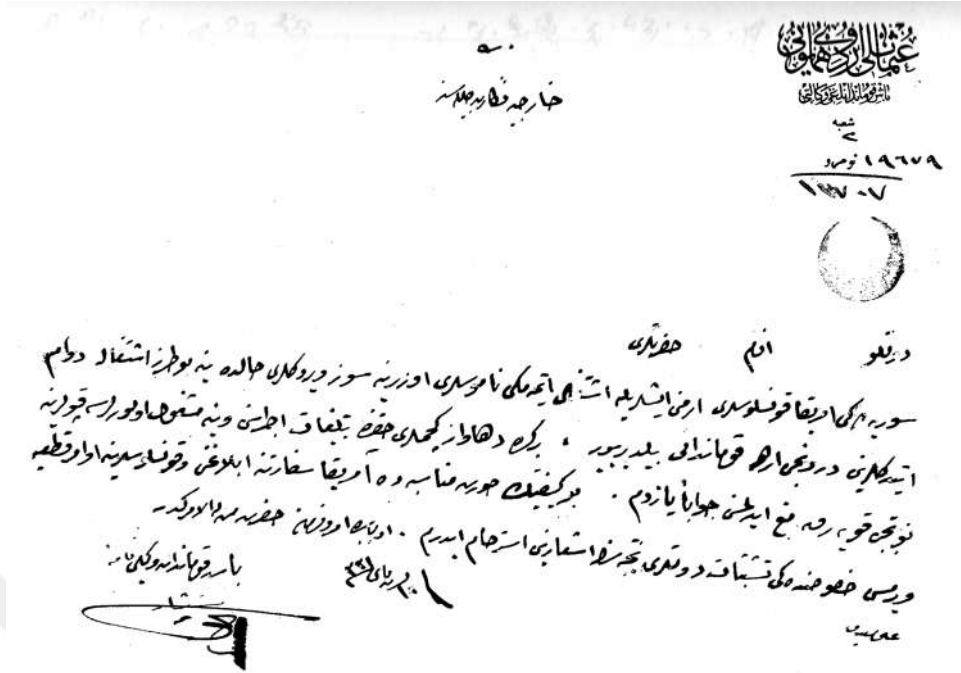 عثمانلی اردوی همایونی
باش قوماندانلغی وکالتی
شعبه
٢
نومرو ١٩٦٧٩
خارجیه نظارت جلیله سنه
دولتلو افندم حضرتلری
سوریه ده کی امریقا قونسلوسلری ارمنی ایشلریله اشتغال ایتمه مکی ناموسلری اوزرینه سوز ویردکلری حالده ینه بو طرز اشتغاله دوام
ایتدکلرینی دردنجی اردو قوماندانی بیلدیریور بر کره دها تبلیغات اجراسنی وینه مشغول اولورلرسه قپولرینه
نوبتجی قویه رق منع ایدلمسنی جواباً یازدم . بو کیفیتك صورت مناسبه ده آمریقا سفارتنه ابلاغنی وقونسلوسلرینه اوامر قطعیه
ویرمسی خصوصنده کی تشبثات دولتلری نتیجه سنك اشعارینی استرحام ایدرم . اولبابده امر وفرمان حضرت من له الامرکدر
باش قوماندان وکیلی نامنه
مستشار